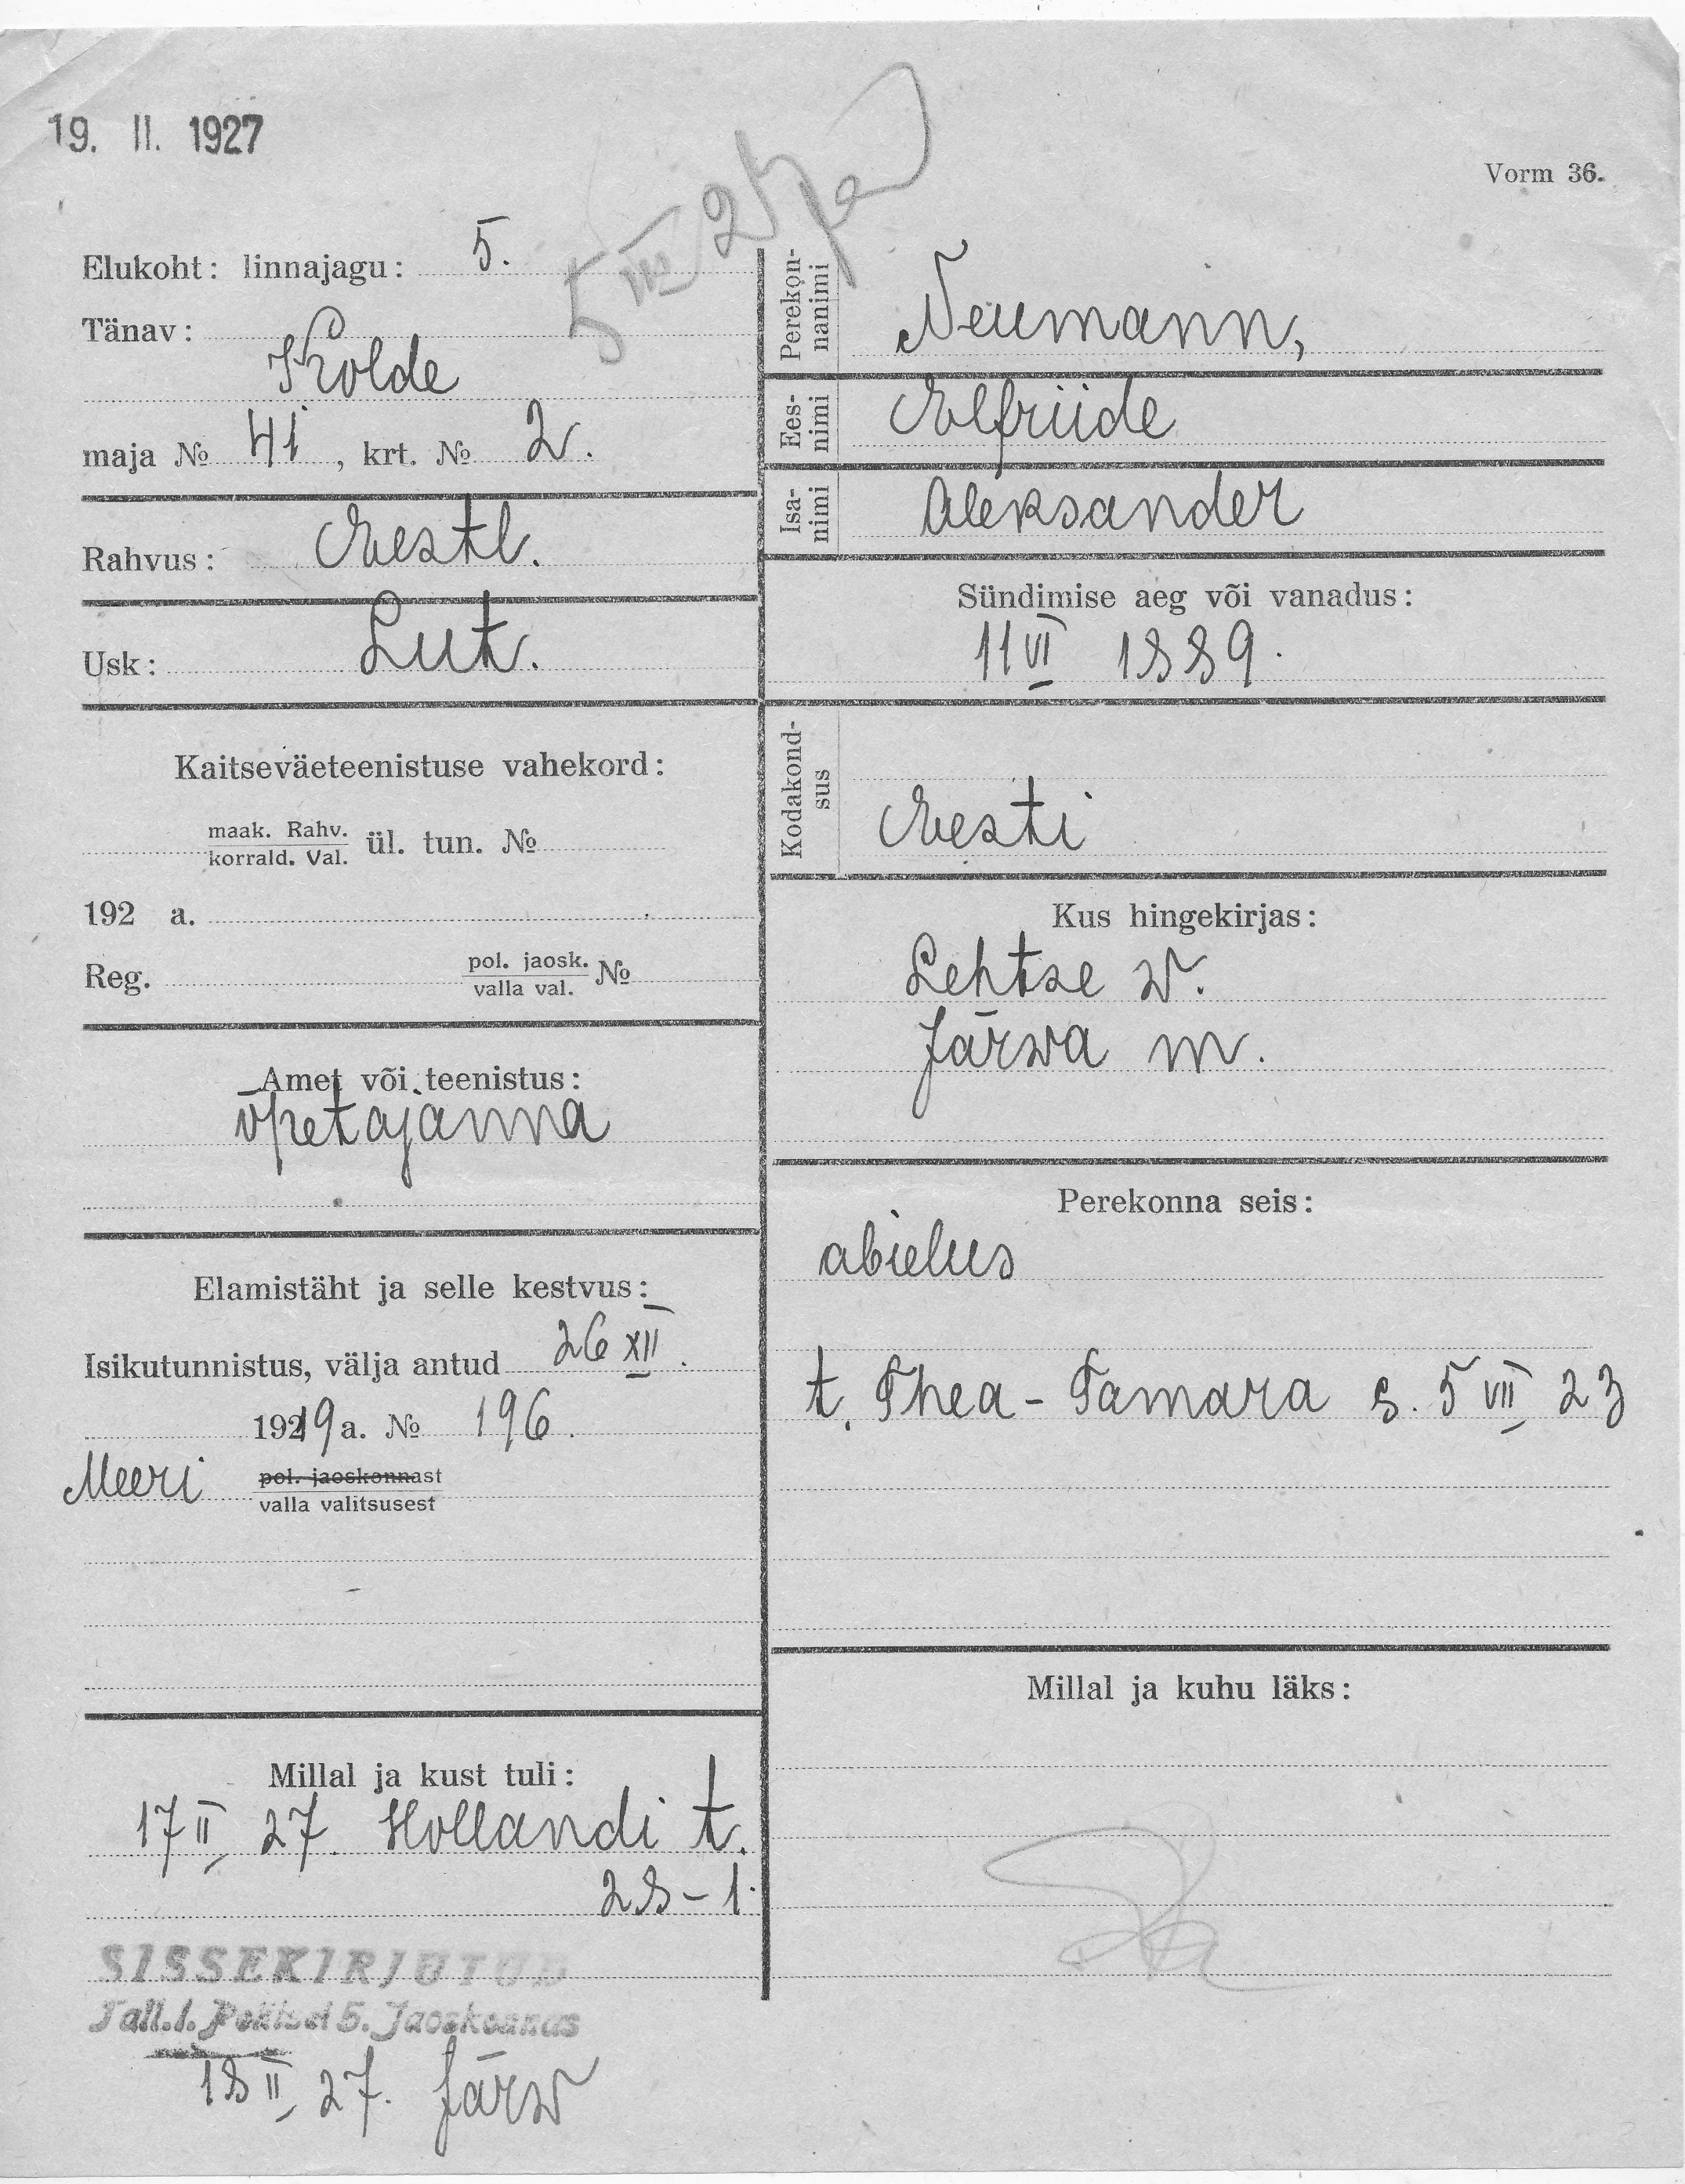 19. II. 1927
Vorm 36.
5 III 27
Elukoht: linnajagu: 5.
Tänav:
Kolde
maja № 41, krt. № 2.
Rahvus: Eestl.
Usk: Lut.
Kaitseväeteenistuse vahekord:
maak. Rahv.
korrald. Val. ül. tun. №
192 a.
Reg. pol. jaosk. №
valla val.
Amet või teenistus:
õpetajanna
Elamistäht ja selle kestvus:
Isikutunnistus, välja antud 26 XII.
1919 a. № 196.
Meeri pol. jaoskonnast
valla valitsusest
Millal ja kust tuli:
17 II 27. Hollandi t.
28-1.
SISSEKIRJUTUD
Tall. l. Politsei 5. Jaoskonnas
18 II 27. Järw
Perekon-
nanimi
Neumann,
Ees-
nimi
Elfriide
Isa-
nimi
Aleksander
Sündimise aeg või vanadus:
11 VI 1889.
Kodakond-
sus
Eesti
Kus hingekirjas:
Lehtse w.
Järwa m.
Perekonna seis:
abielus
t. Thea-Tamara s. 5 VII 23
Millal ja kuhu läks: